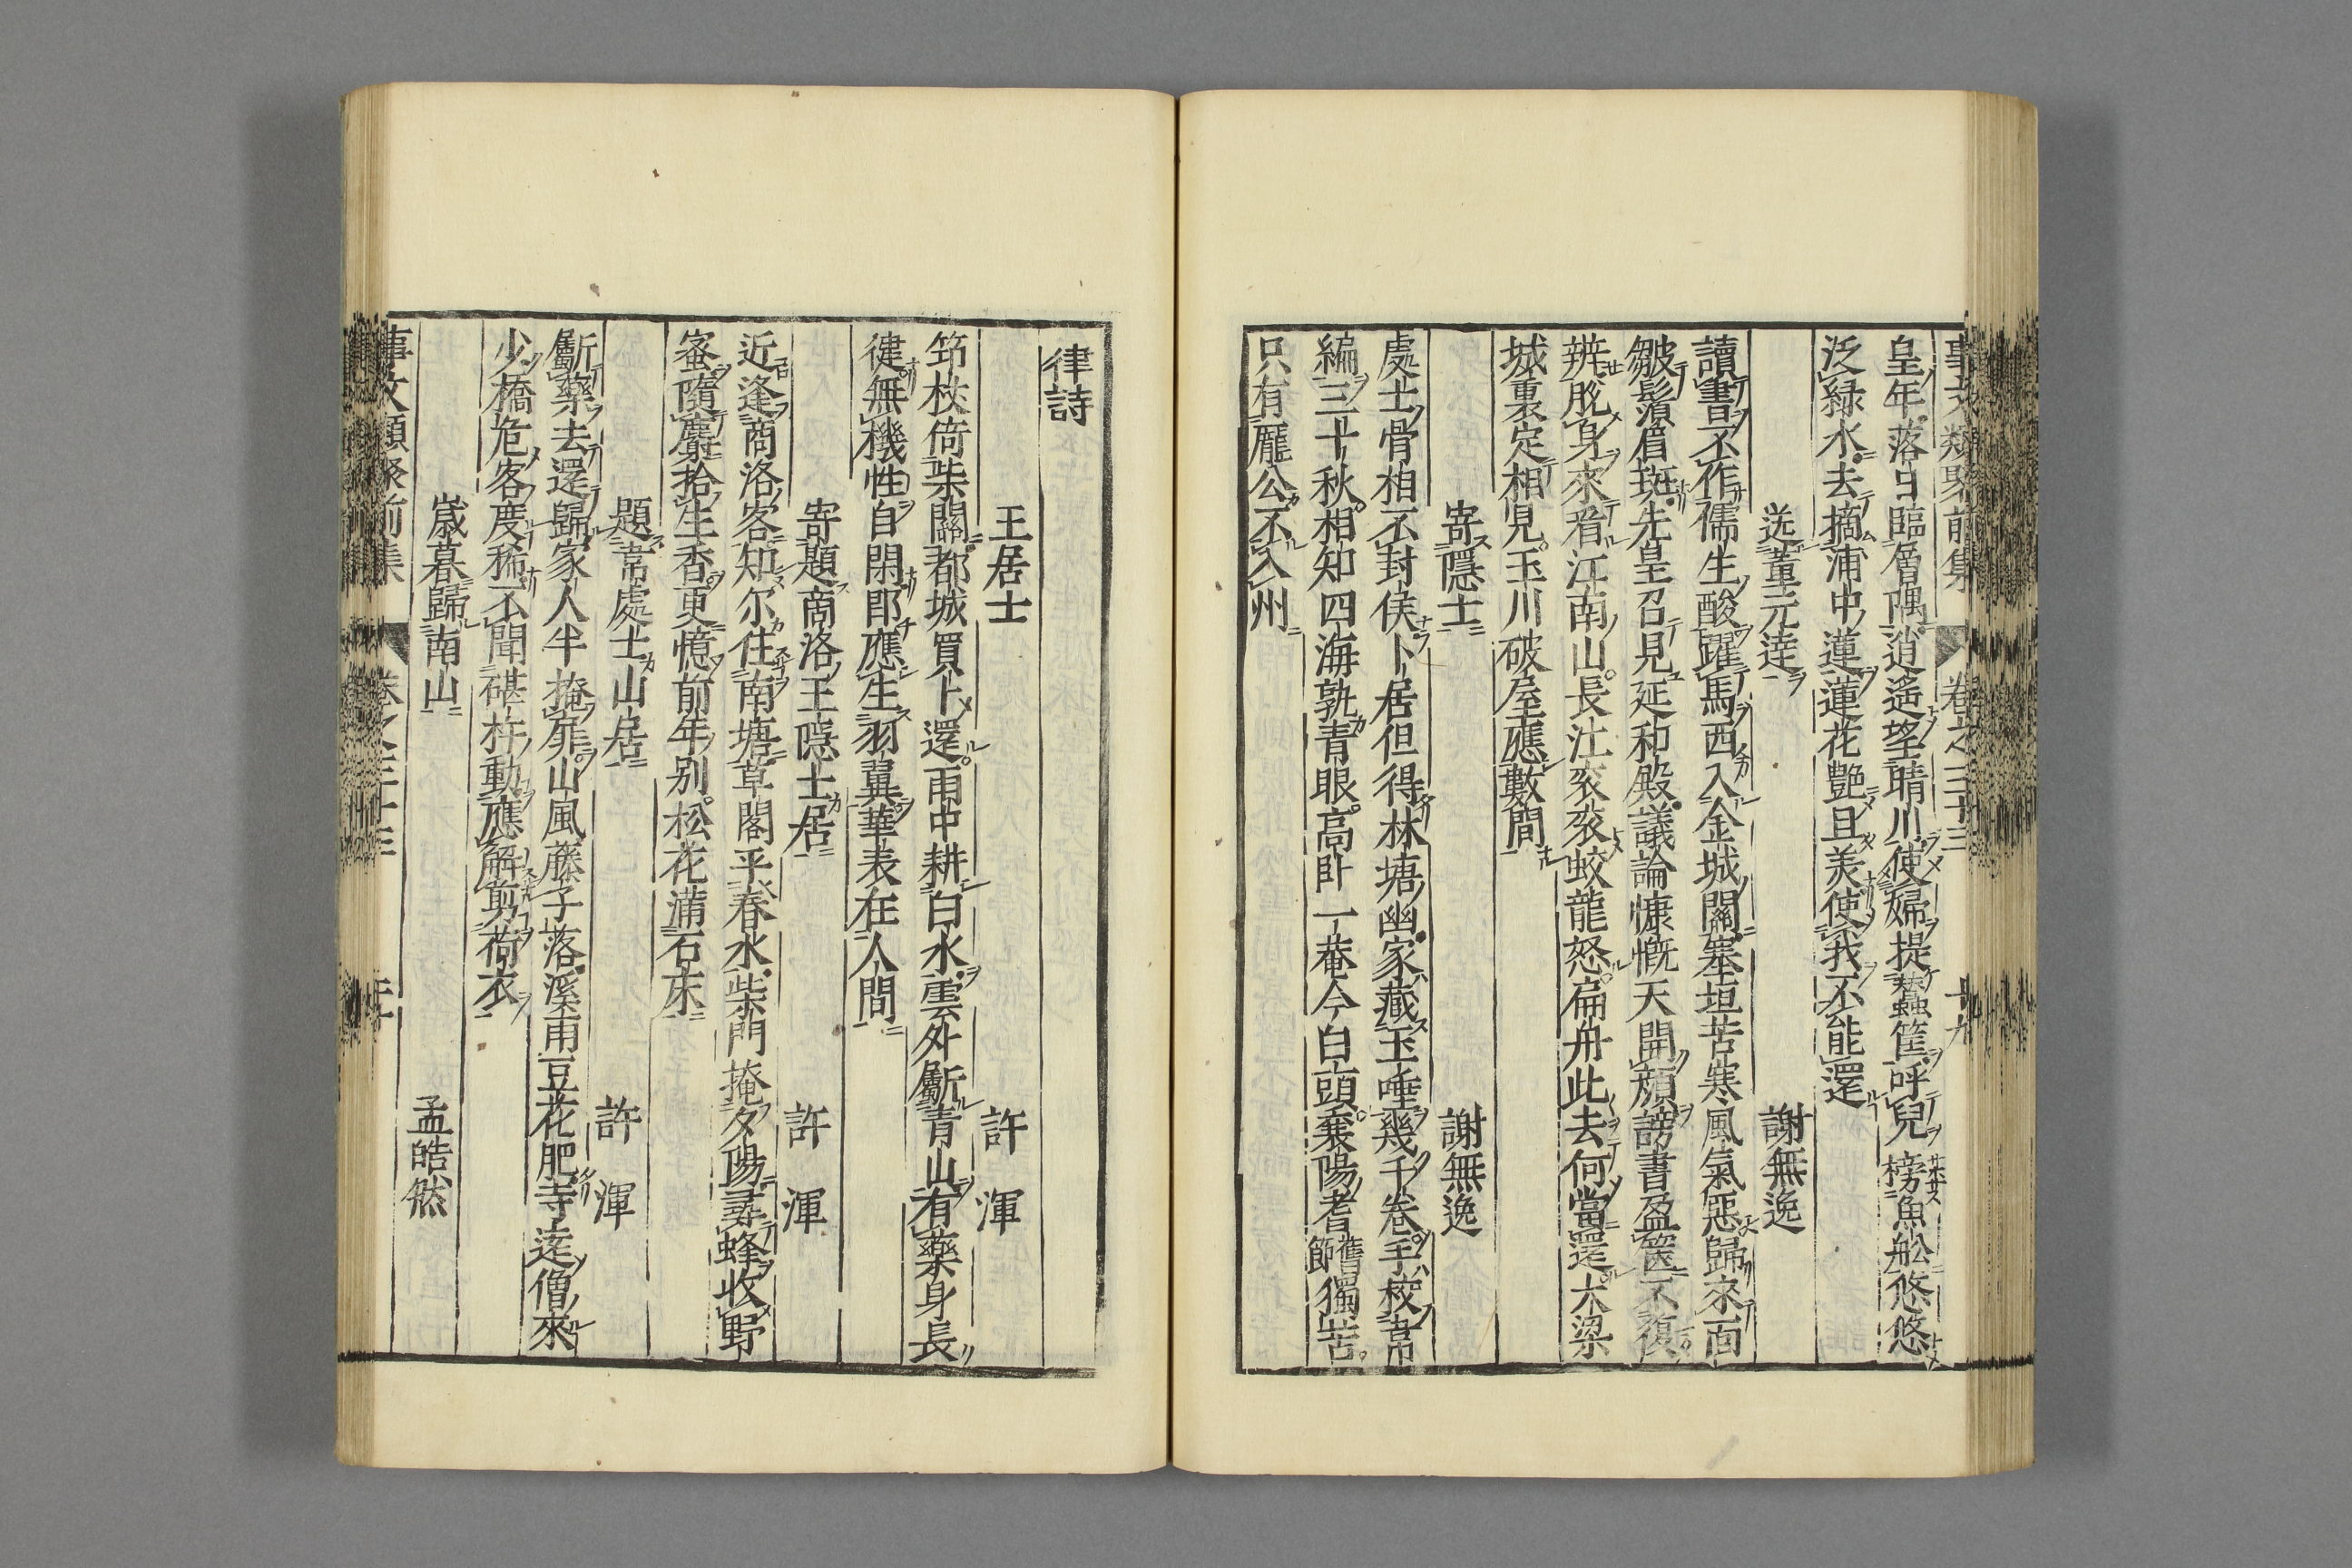 事文類聚前集　卷之三十三　十九
皇年落日臨層隅逍遙望晴川使婦提蠶筐呼兒榜魚舩悠悠
泛緑水去摘浦中蓮蓮花艶且美使我不能還
送董元達　謝無逸
讀書不作儒生酸躍馬西入金城關塞垣苦寒風氣惡歸來面
皺鬚眉斑先皇召見延和殿議論慷慨天開顔謗書盈篋不復
辨脫身來看江南山長江衮衮蛟龍怒扁舟此去何當還大梁
城裏定相見玉川破屋應數間
寄隱士　謝無逸
處士骨相不封侯卜居但得林塘幽家藏玉唾幾千卷手校韋
編三十秋相知四海孰青眼高卧一菴今白頭襄陽耆舊節獨苦
只有龐公不入州
律詩
王居士　許渾
筇杖倚柴關都城買卜還雨中耕白水雲外斸青山有藥身長
徤無機性自閑即應生羽翼華表在人間
寄題商洛王隱士居　許渾
近逢商洛客知尓住南塘草閣平春水柴門掩夕陽尋蜂收野
蜜隨麝拾生香更憶前年别松花滿石床
題常處士山居　許渾
斸藥去還歸家人半掩扉山風藤子落溪雨豆花肥寺逺僧來
少橋危客度稀不聞碪杵動應解剪荷衣
嵗暮歸南山　孟皓然
事文類聚前集　卷之三十三　二十